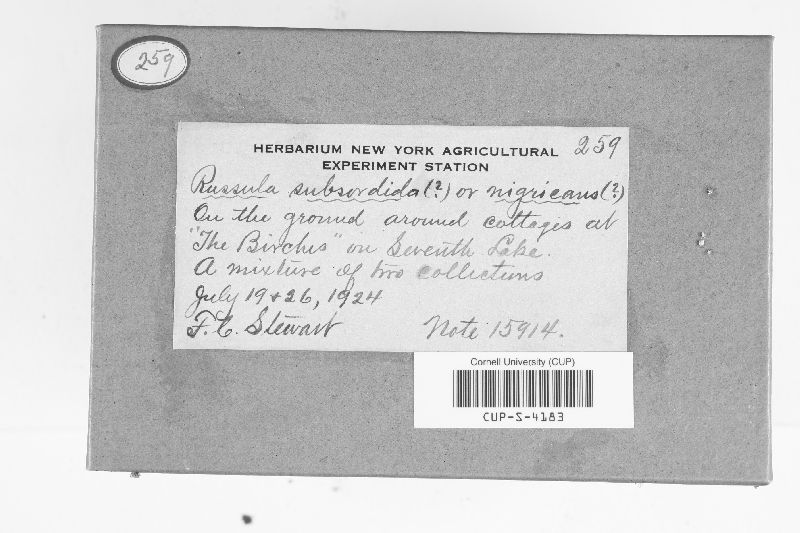 259
HERBARIUM NEW YORK AGRICULTURAL 259
EXPERIMENT STATION
Russula subsordida(?) or nigricans(?)
On the ground around cottages at
"The Birches" on Seventh Lake.
A mixture of two collections
July 19 + 26, 1924
F. C. Stewart Note 15914.
Cornell University (CUP)
CUP-S-4183